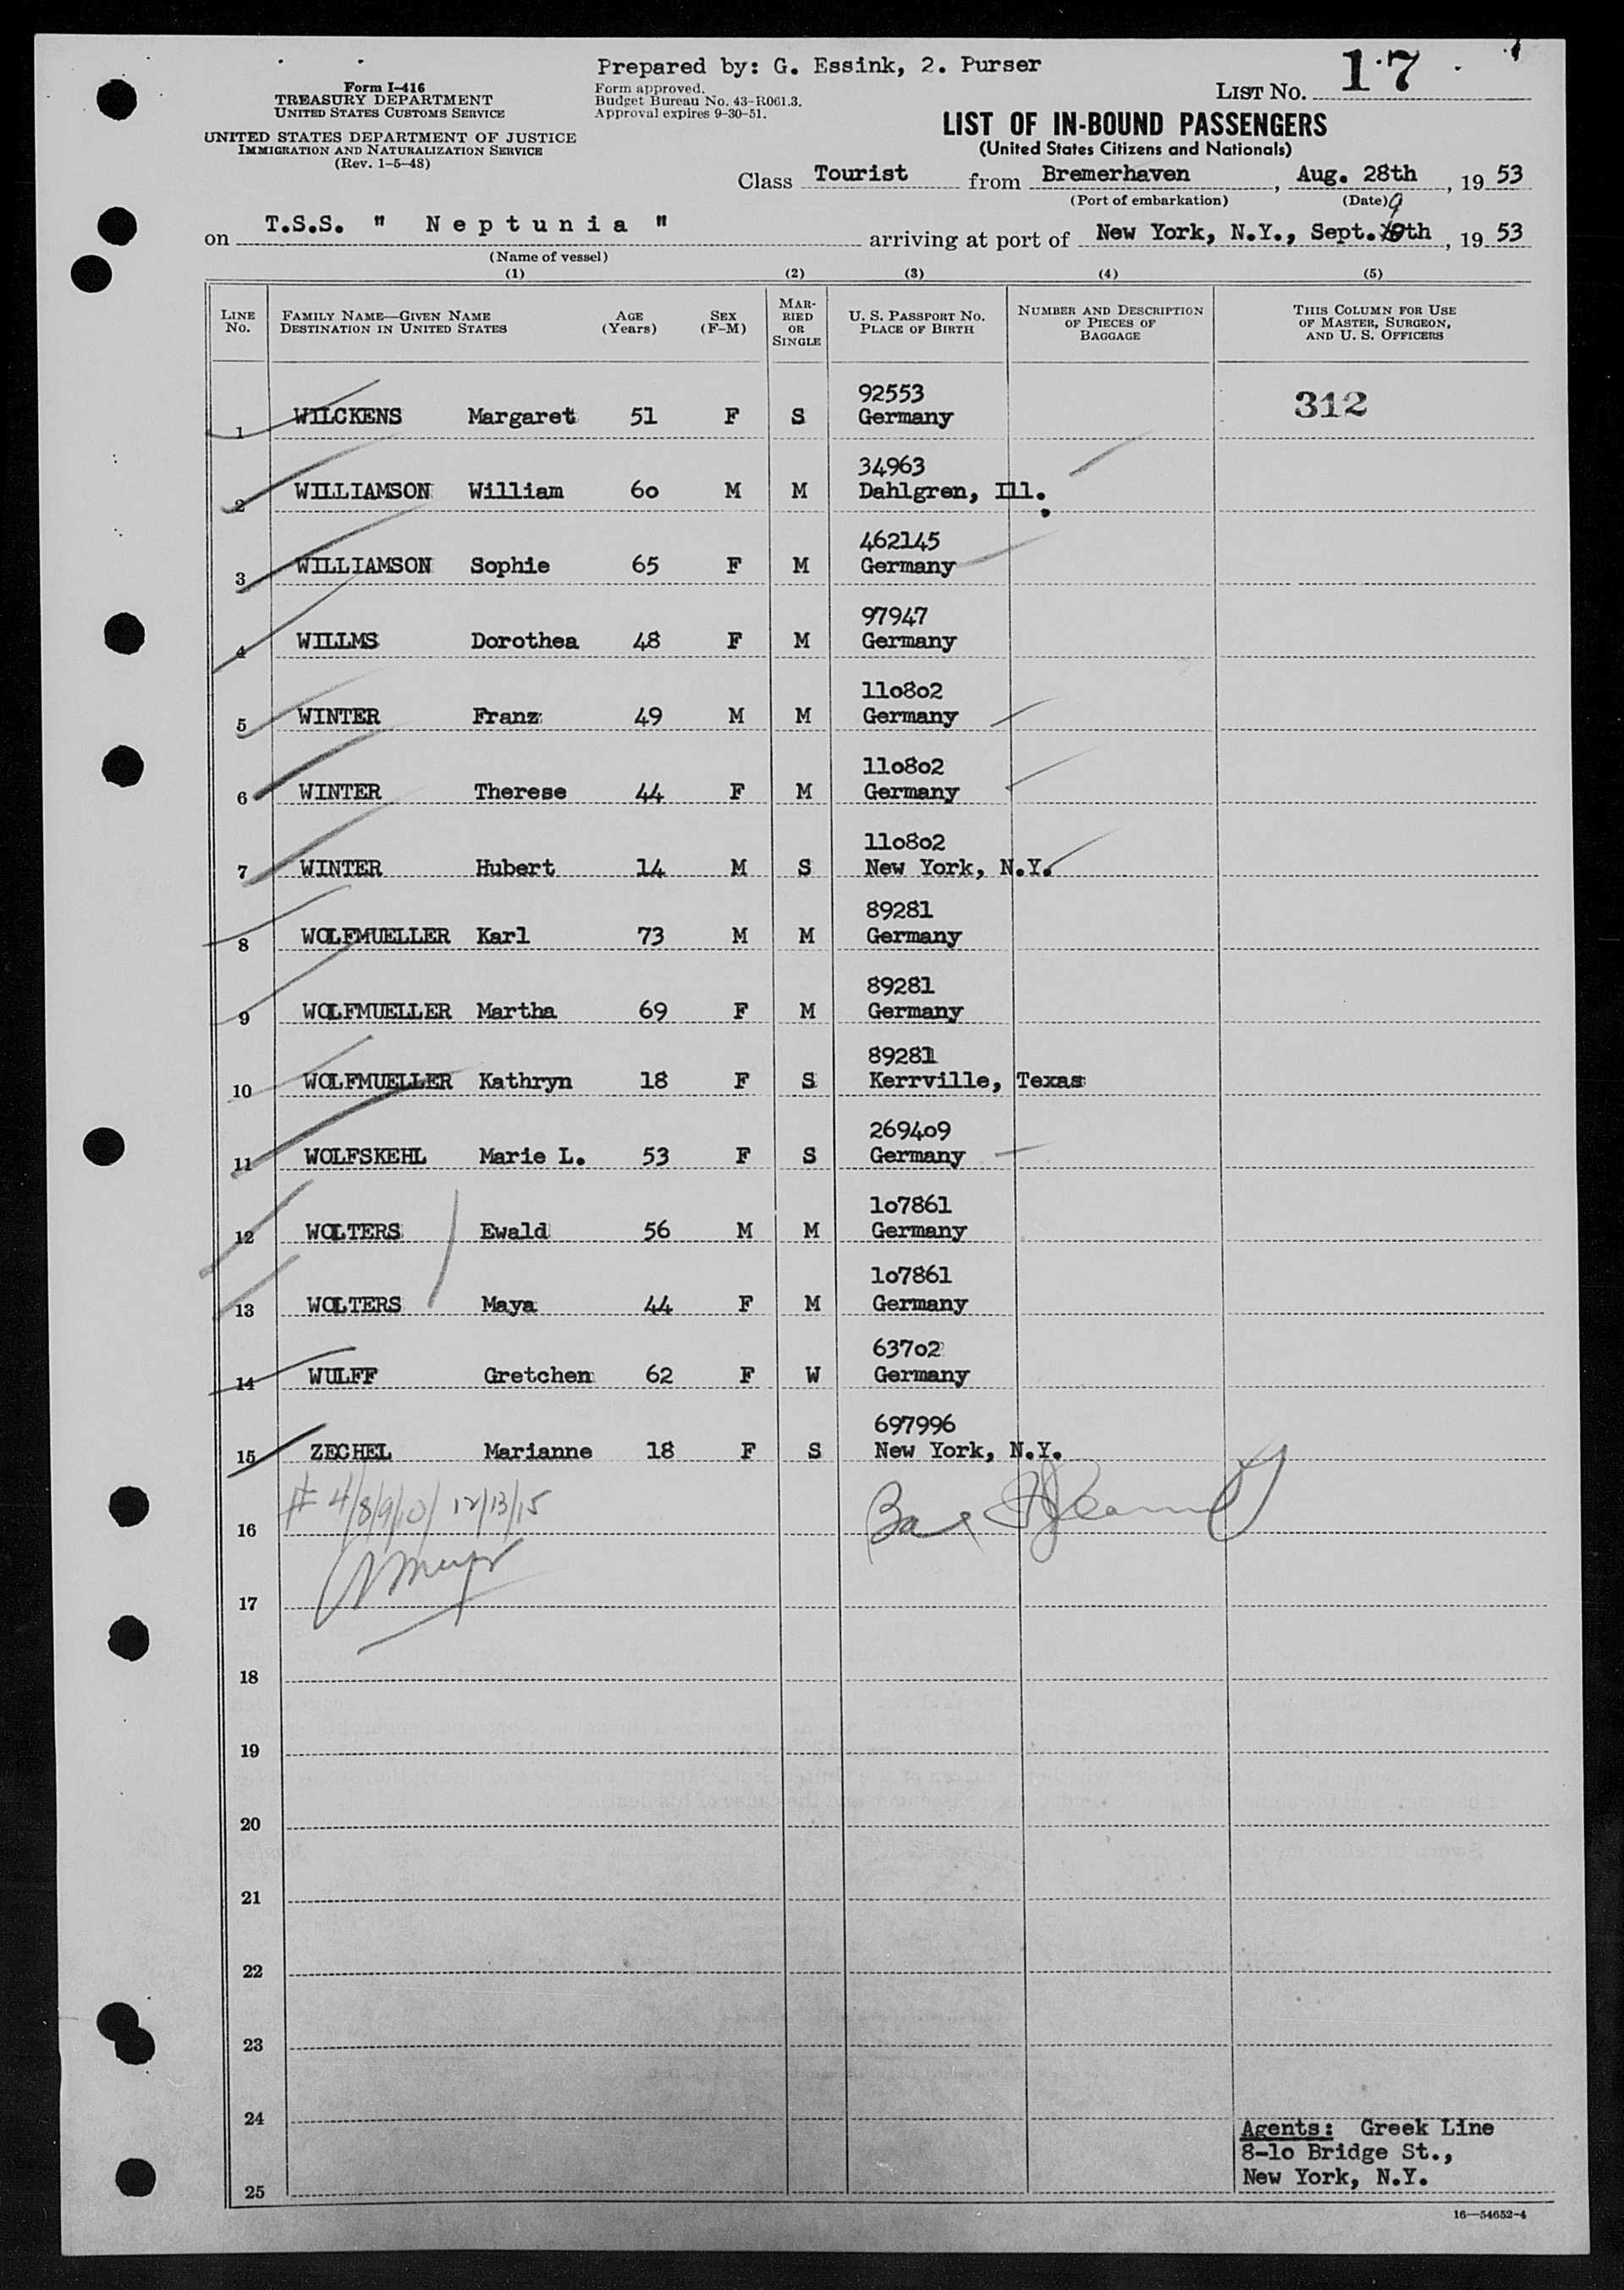 Prepared by: G. Essink, 2. Purser
Form I-416
TREASURY DEPARTMENT
UNITED STATES CUSTOMS SERVICE
UNITED STATES DEPARTMENT OF JUSTICE
IMMIGRATION AND NATURALIZATION SERVICE
(Rev. 1-5-48)
Form approved.
Budget Bureau No. 43-R061.3.
Approval expires 9-30-51.
LIST No. 17
LIST OF IN-BOUND PASSENGERS
(United States Citizens and Nationals)
Class Tourist from Bremerhaven, Aug. 28th, 19 53
(Port of embarkation) (Date)
on T.S.S. " Neptunia " arriving at port of New York, N.Y., Sept. 9th, 19 53
(Name of vessel)
(1) (2) (3) (4) (5)
LINE No. FAMILY NAME—GIVEN NAME DESTINATION IN UNITED STATES AGE (Years) SEX (F-M) MARRIED OR SINGLE U. S. PASSPORT NO. PLACE OF BIRTH NUMBER AND DESCRIPTION OF PIECES OF BAGGAGE THIS COLUMN FOR USE OF MASTER, SURGEON, AND U. S. OFFICERS
92553 312
1 WILCKENS Margaret 51 F S Germany
34963
2 WILLIAMSON William 60 M M Dahlgren, Ill.
462145
3 WILLIAMSON Sophie 65 F M Germany
97947
4 WILLMS Dorothea 48 F M Germany
110802
5 WINTER Franz 49 M M Germany
110802
6 WINTER Therese 44 F M Germany
110802
7 WINTER Hubert 14 M S New York, N.Y.
89281
8 WOLFMUELLER Karl 73 M M Germany
89281
9 WOLFMUELLER Martha 69 F M Germany
89281
10 WOLFMUELLER Kathryn 18 F S Kerrville, Texas
269409
11 WOLFSKEHL Marie L. 53 F S Germany
107861
12 WOLTERS Ewald 56 M M Germany
107861
13 WOLTERS Maya 44 F M Germany
63702
14 WULFF Gretchen 62 F W Germany
697996
15 ZECHEL Marianne 18 F S New York, N.Y.
# 4/8/9/10/ 12/13/15
16
17
18
19
20
21
22
23
24
Agents: Greek Line
8-10 Bridge St.,
New York, N.Y.
25
16—54652-4